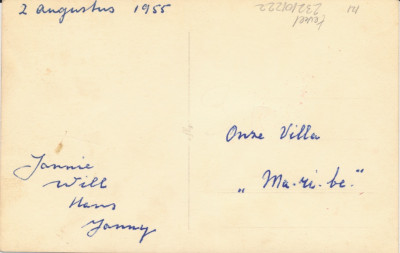 2 augustus 1955
Texel
232101222
Onze Villa
„ Ma-ri-be."
Jannie
Will
Hans
Janny